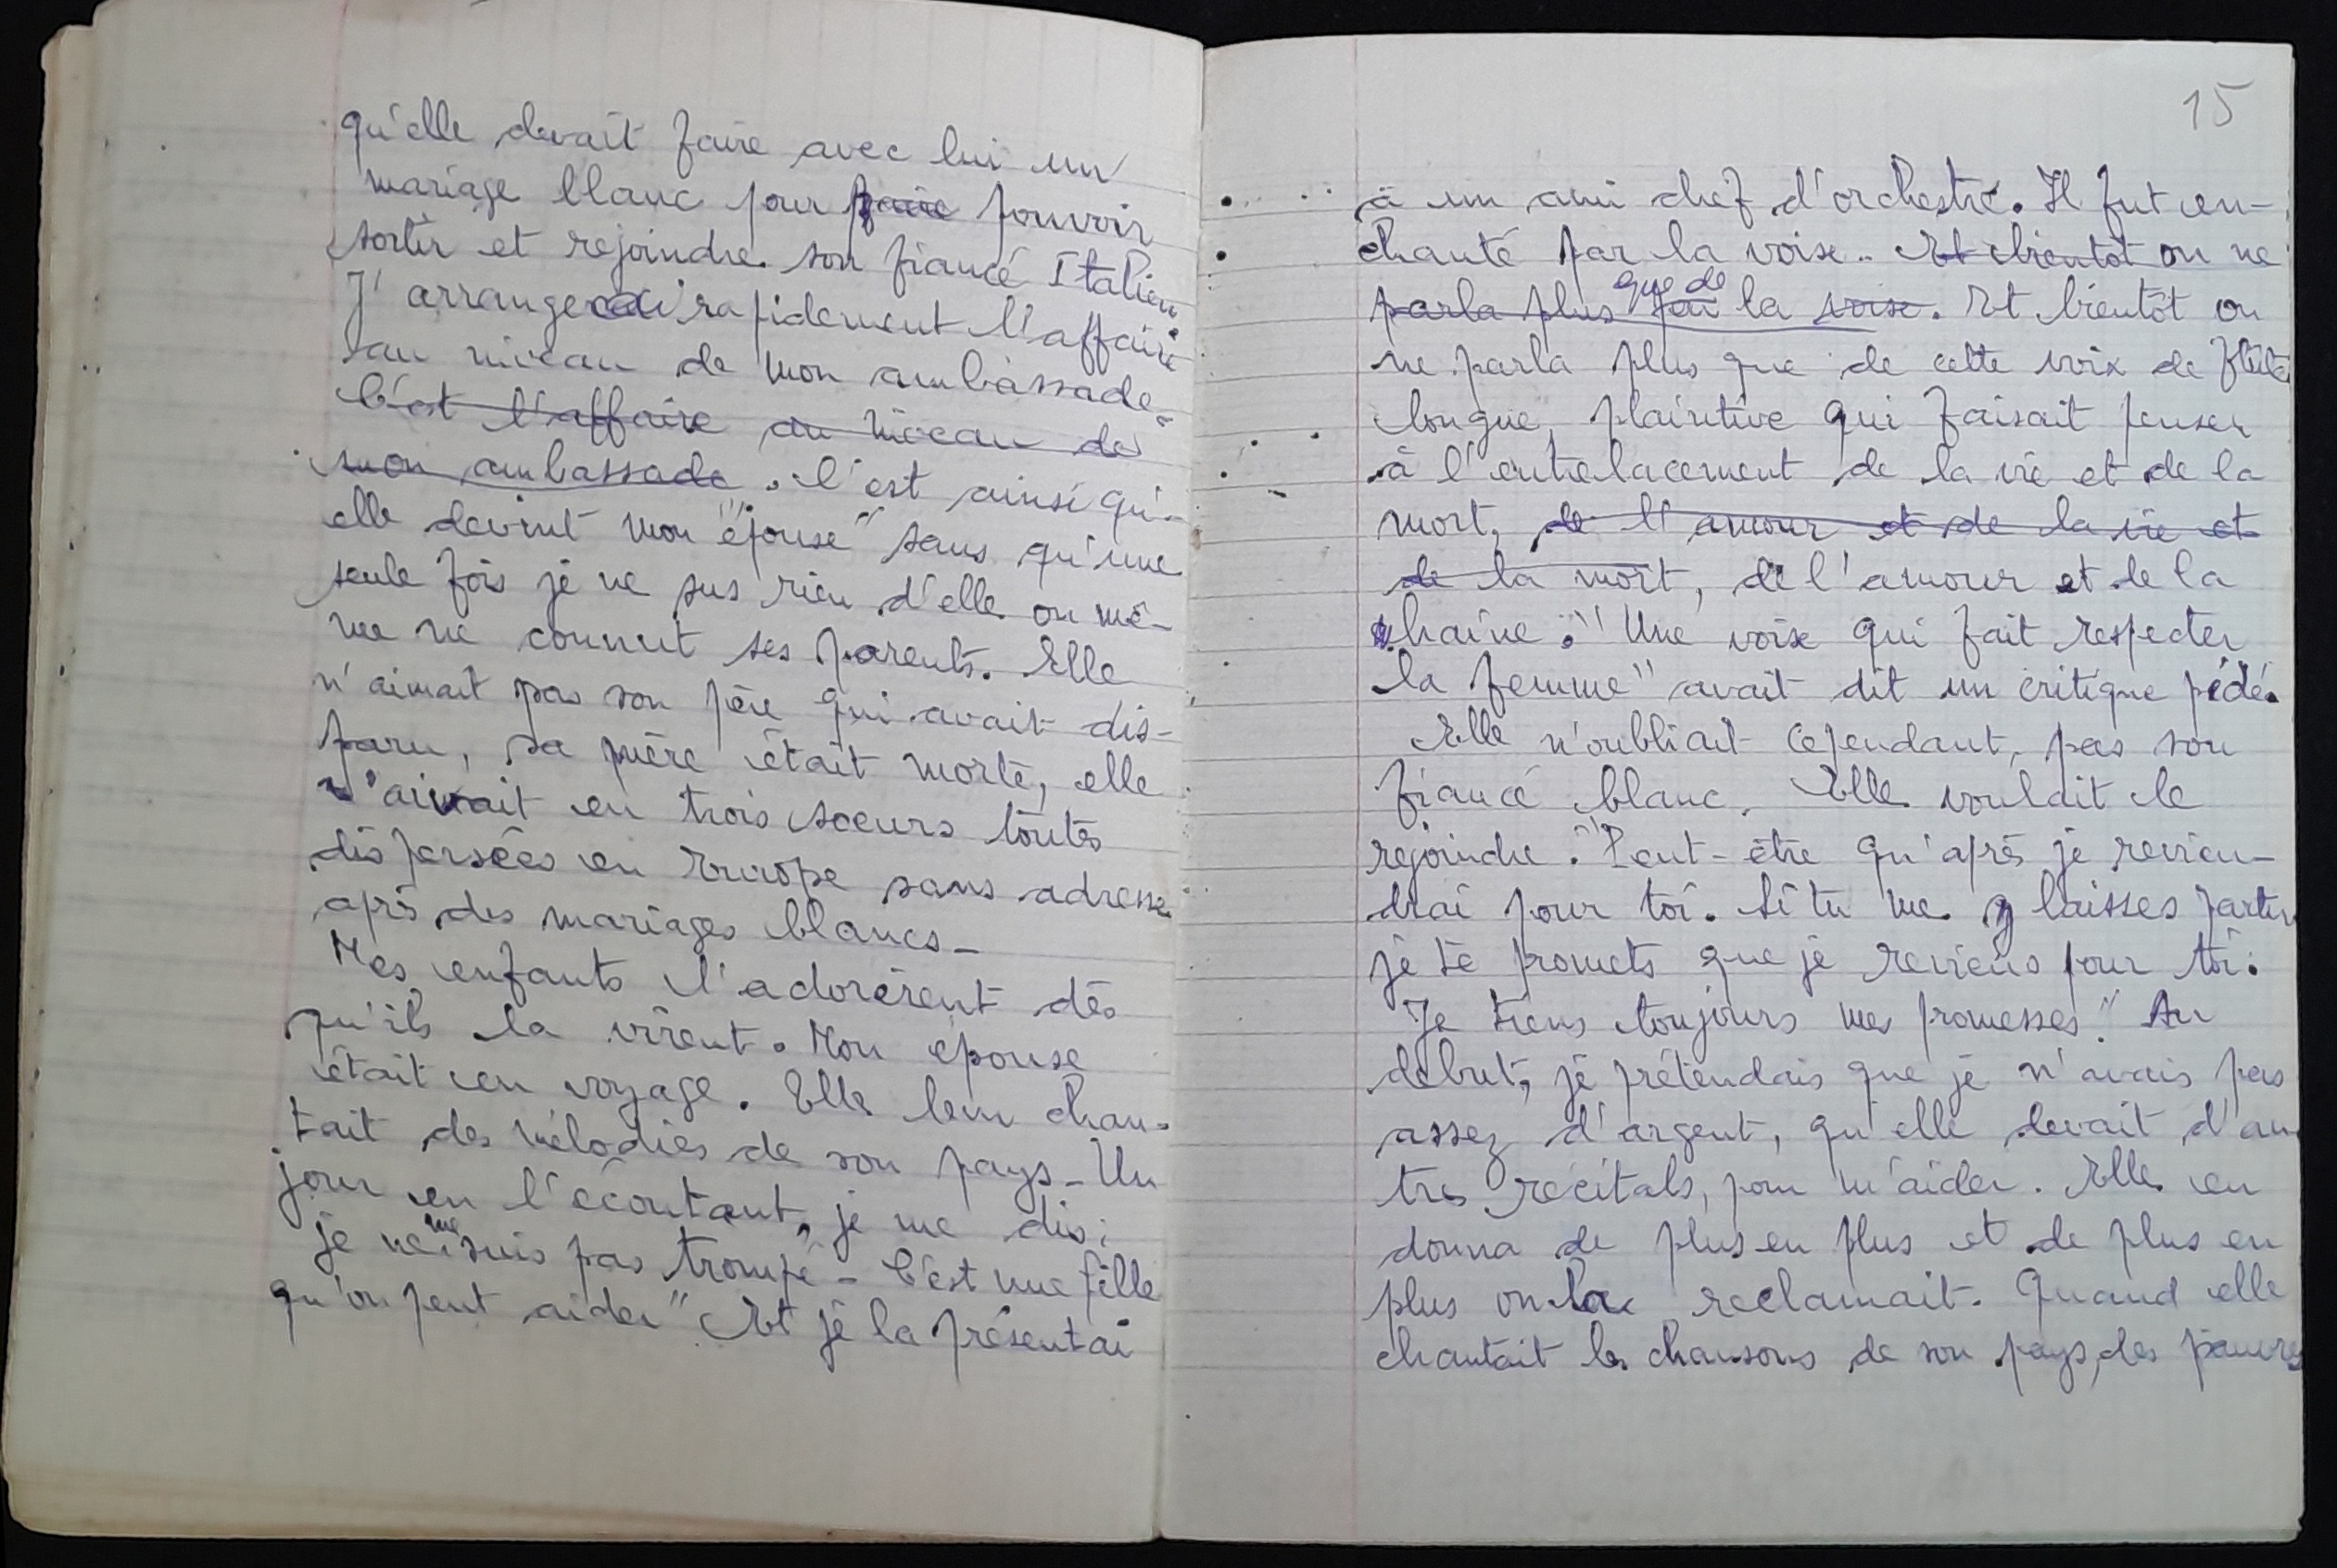 qu'elle devait faire avec lui un
mariage blanc pour faire pouvoir
sortir et rejoindre son fiancé Italien
J'arrangeai rapidement l'affaire
au niveau de mon ambassade.
C'est l'affaire au niveau de
mon ambassade. C'est ainsi qu'-
elle devint mon "épouse" sans qu'une
seule fois je ne sus rien d'elle ou mê-
me ne connut ses parents. Elle
n'aimait pas son père qui avait dis-
paru, sa mère était morte, elle
avait eu trois soeurs toutes
dispersées en Europe sans adresse
après des mariages blancs_
Mes enfants l'adorèrent dès
qu'ils la virent. Mon épouse
était en voyage. Elle leur chan-
tait des mélodies de son pays_ Un
jour en l'écoutant, je me dis:
je ne me suis pas trompé - C'est une fille
qu'on peut aider" Et je la présentai
15
à un ami chef d'orchestre. Il fut en-
chanté par la voix.. Et bientôt on ne
parla plus que de la voix. Et bientôt on
ne parla plus que de cette voix de flûte
longue, plaintive qui faisait penser
à l'entrelacement de la vie et de la
mort, de l'amour et de la vie et
de la mort, de l'amour et de la
haine. "Une voix qui fait respecter
la femme" avait dit un critique pédé.
Elle n'oubliait cependant, pas son
fiancé blanc. Elle voulait le
rejoindre. "Peut-être qu'après je revien-
drai pour toi. Si tu me laisses partir
je te promets que je reviens pour toi.
Je tiens toujours mes promesses" Au
debut, je prétendais que je n'avais pas
assez d'argent, qu'elle devait d'au
tres récitals, pour m'aider. Elle en
donna de plus en plus et de plus en
plus on la reclamait. Quand elle
chantait les chansons de son pays, des pauvres